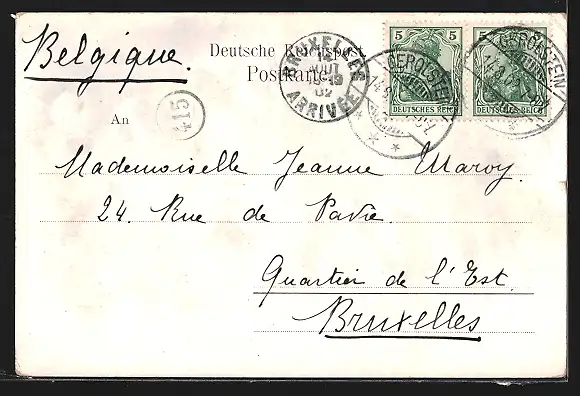 Belgique.
Deutsche Reichspost
Postkarte
An
415
BRUXELLES
AOUT
02
ARRIVÉE
5 5
DEUTSCHES REICH
5 5
DEUTSCHES REICH
GEROLSTEIN
GEROLSTEIN
Mademoiselle Jeanne Maroy.
24. Rue de Pavie.
Quartier de l'Est.
Bruxelles